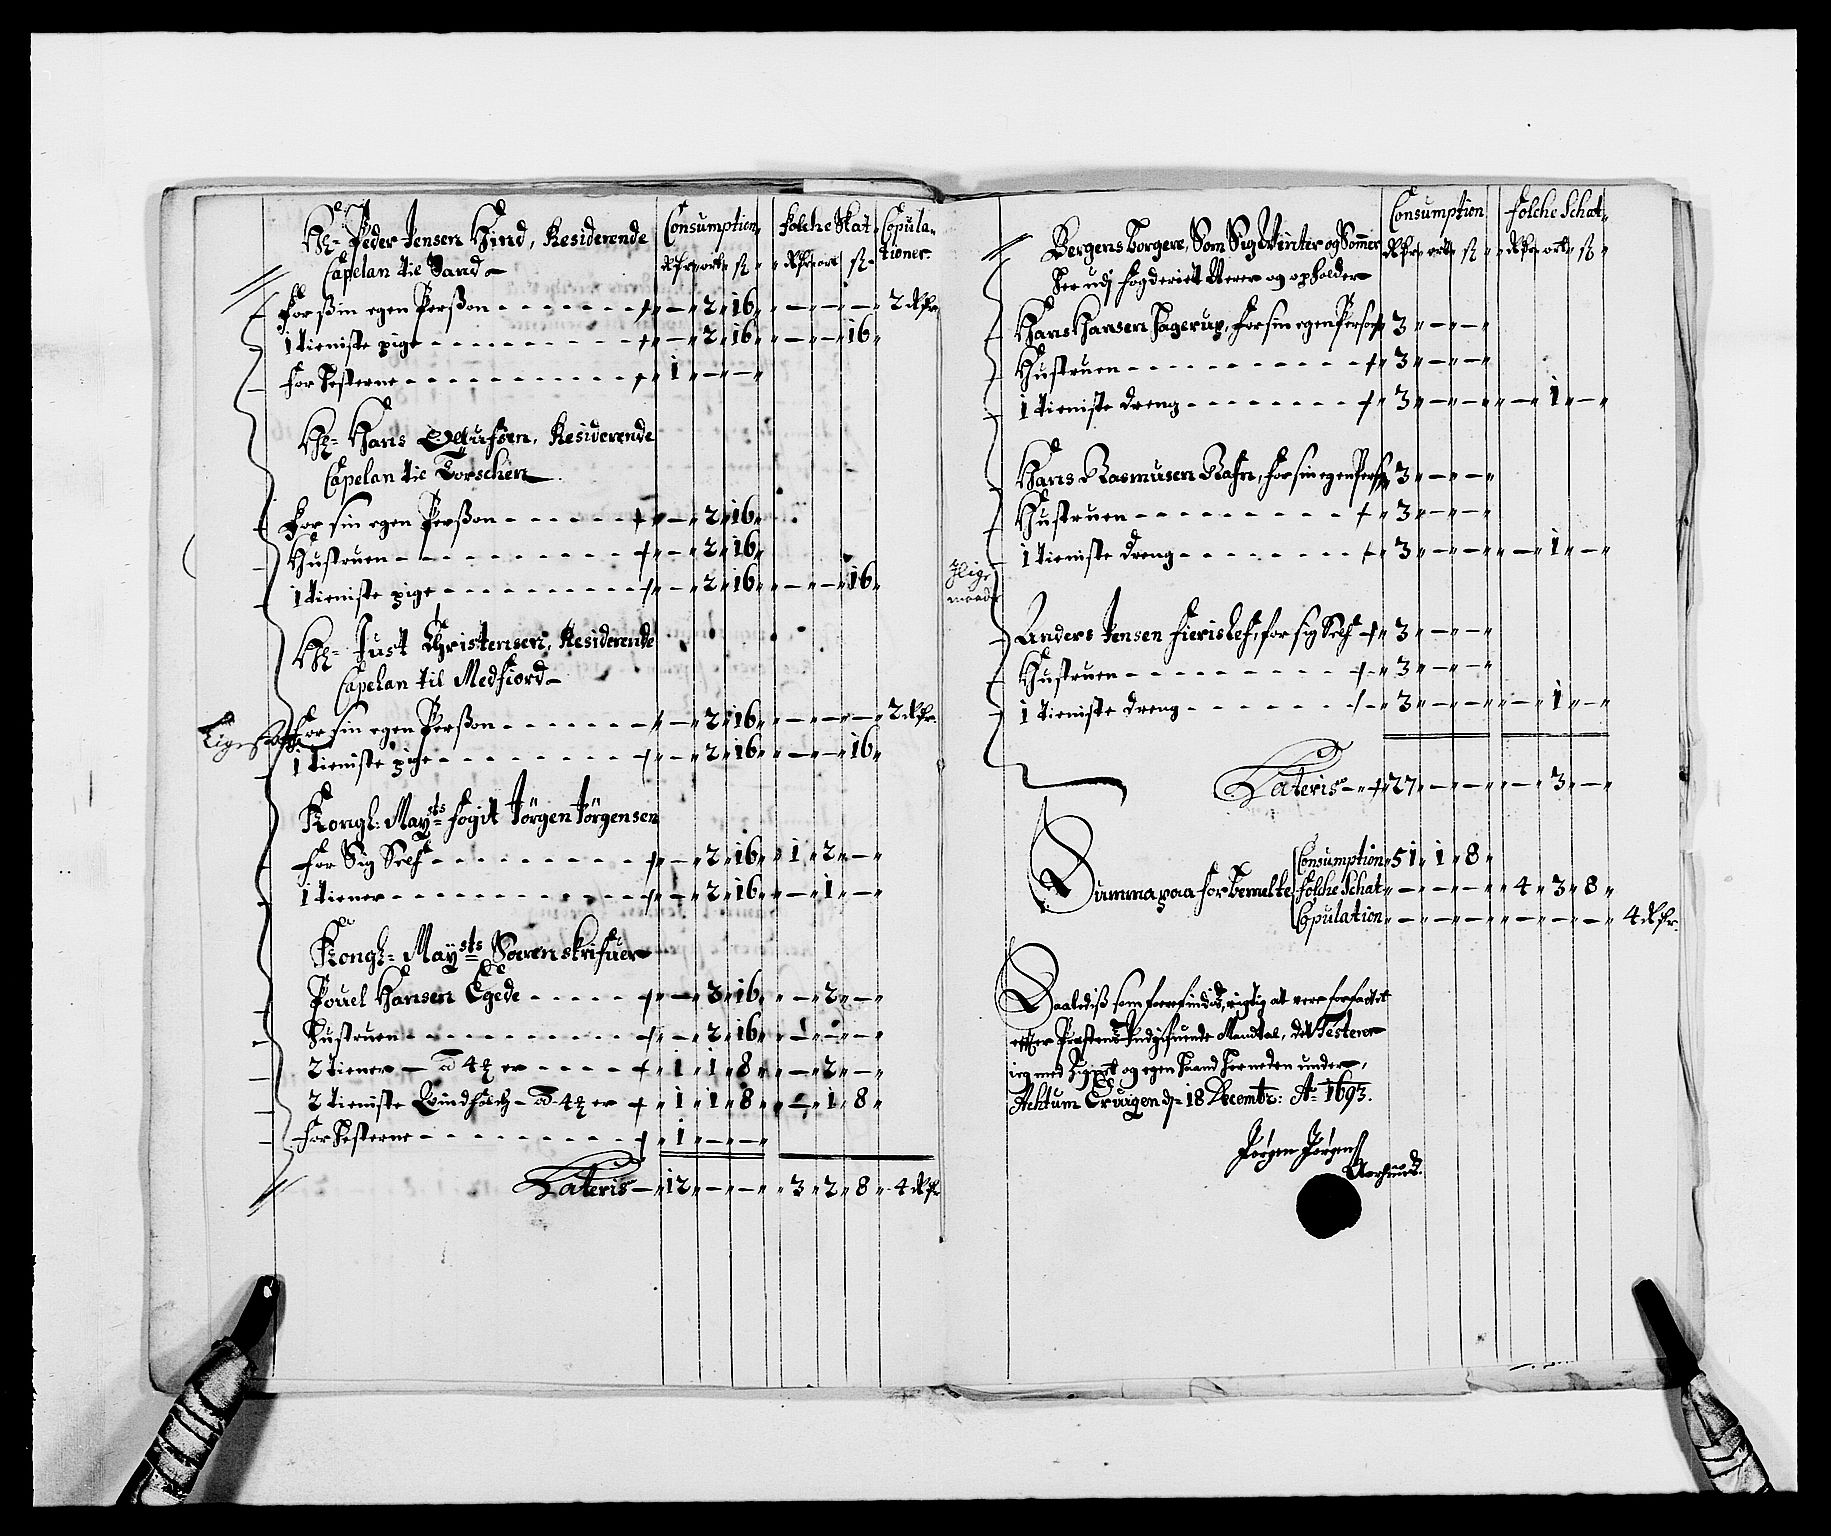 Hr= Peder Jensen Hind, Residerende
Capelan til Sand
Consumption Folche Skat Copula-
tioner
Rdr ort ß Rdr ort ß
For sin egen Perßon - 2 16 - - - 2 Rdr
1 tieniste pige - 2 16 - - 16
for Hesterne 1 - -
Hr= Hans Olufsen, Residerende
Capelan til Torschen
For sin egen Perßon - 2 16
Hustruen - 2 16
1 tieniste pige - 2 16 - - 16
Hr= Just Christensen, Residerende
Capelan til Medfiord
For sin egen Perßon - 2 16 - - - 2 Rdr
1 tieniste pige - 2 16 - - 16
Kongl: Maysts fogit Jörgen Jörgensen
for Sig Self - 2 16 1 2 -
1 tiener - 2 16 - 1 -
Kongl= Maysts Soren skrifuer
Pouel Hansen Egede - 3 16 - 2 -
Hustruen - 2 16 - - -
2 tiener - a 4 ß er 1 1 8 - 2 -
2 tieniste Quindfolch - a 4 ß er 1 1 8 - 1 8
for Hesterne 1 - -
Lateris 12 - - 3 2 8 4 Rdr
Bergens Borgere, Som Sig Winter og Sommer
her udj fogderiet Werer og opholder
Consumption Folche Schat
Rdr ort ß Rdr ort ß
Hans Hansen Fagerup, for sin egen Person 3 - -
Hustruen 3 - -
1 tieniste dreng 3 - - - 1 -
Hans Rasmusen Rafn, for sin egen Perß 3 - -
Hustruen 3 - -
1 tieniste dreng 3 - - - 1 -
Jlige
maade
Anders Jensen Fierislef, for sig Self 3 - -
Hustruen 3 - -
1 tieniste dreng 3 - - - 1 -
Lateris 27 - - - 3 -
Consumption 51 1 8
Summa paa forbemelte Folche Schat - - - 4 3 8
Copulation - - - - - - 4 Rdr
Saalediß som forefindis, rigtig at vere forfattet
efter Præstens Mandtal, det Testerer
ieg med Zignet og egen Haand her neden under,
Actum Cruigen d= 18 Decembr: Ao 1693.
Jörgen Jörgenß
Aarhuus.